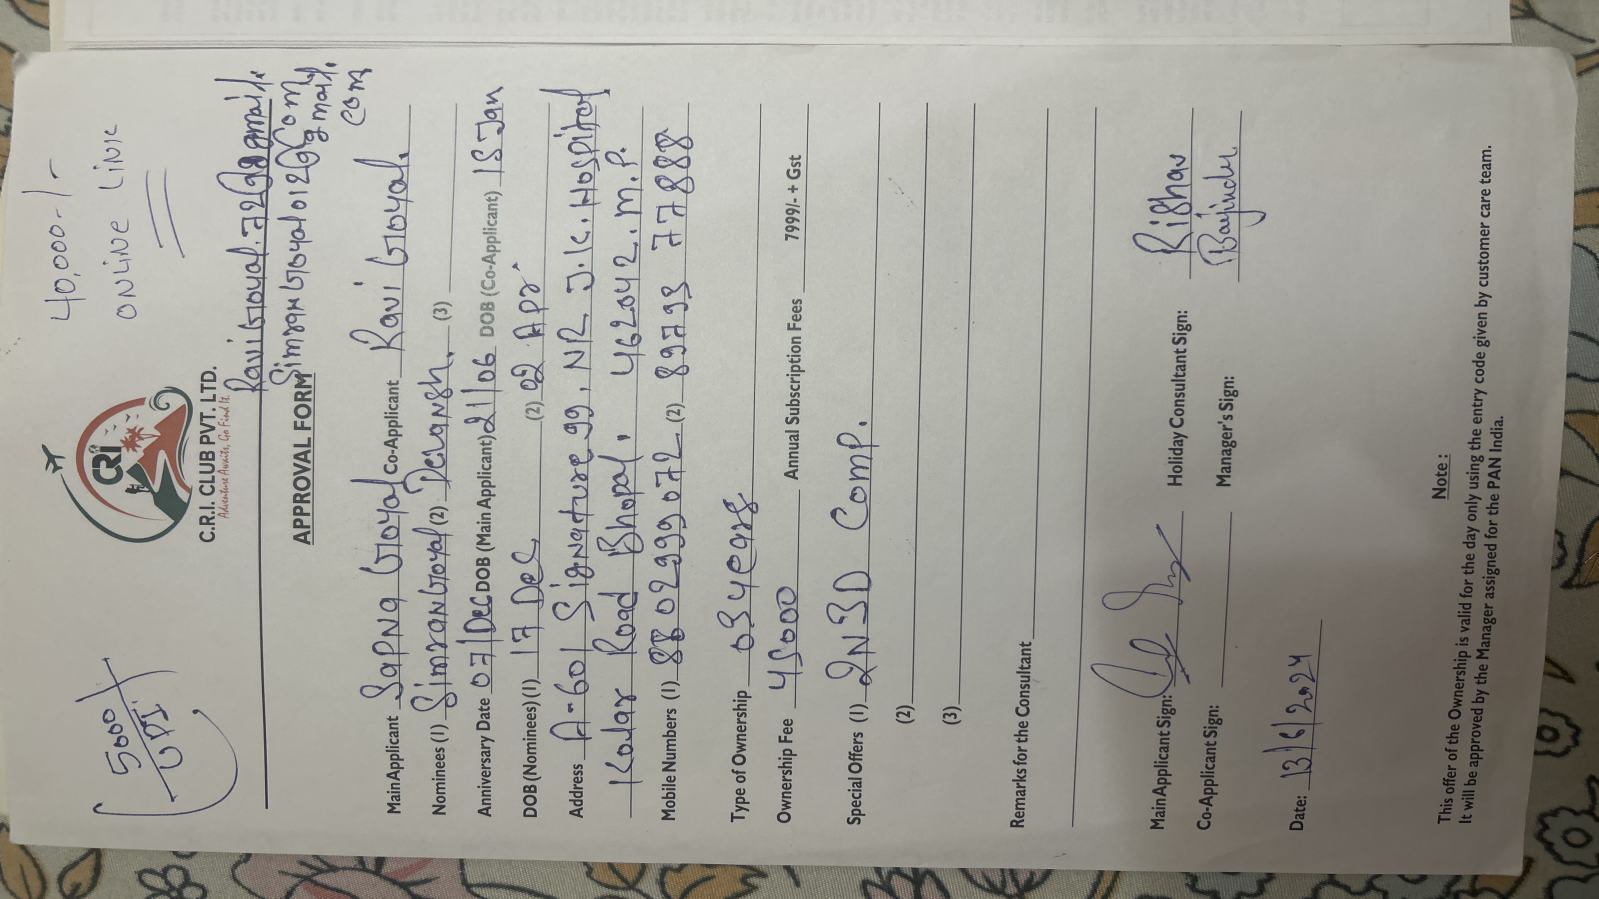 5000/
UPI
40,000-/-
ONLINE LINK
CRI
C.R.I. CLUB PVT. LTD.
Adventure Awaits, Go Find It.
Ravi Goyal.7298@gmail.
com
APPROVAL FORM
Simran Goyal0129@gmail.
com
Main Applicant Sapna Goyal Co-Applicant Ravi Goyal.
Nominees (1) Simran Goyal (2) Devansh. (3)
Anniversary Date 07/Dec DOB (Main Applicant) 21/06 DOB (Co-Applicant) 15 Jan
DOB (Nominees) (1) 17 Dec (2) 02 Apr
Address A-601 Signature 99, NR. J.K. Hospital
Kolar Road Bhopal, 462042. M.P.
Mobile Numbers (1) 8802999072 (2) 89793 77888
Type of Ownership 03 years
Ownership Fee 45000 Annual Subscription Fees 7999/- + Gst
Special Offers (1) 2N3D Comp.
(2)
(3)
Remarks for the Consultant
Main Applicant Sign: Holiday Consultant Sign: Rishav
Co-Applicant Sign: Manager's Sign:
Date: 13/6/2024
Note :
This offer of the Ownership is valid for the day only using the entry code given by customer care team.
It will be approved by the Manager assigned for the PAN India.